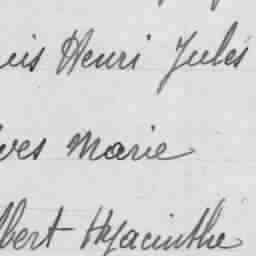 uis Henri Jules
ves Marie
lbert Hyacinthe